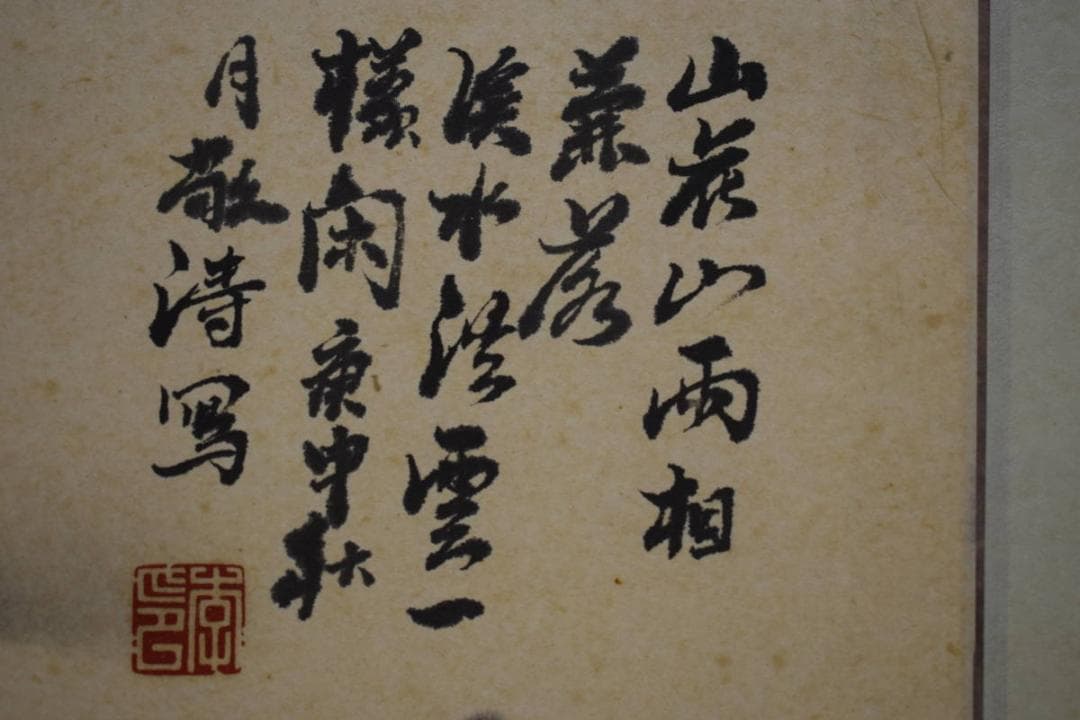 山花山雨相
兼落
溪水溪雲一
樣閑 庚申秋
月敬濤寫